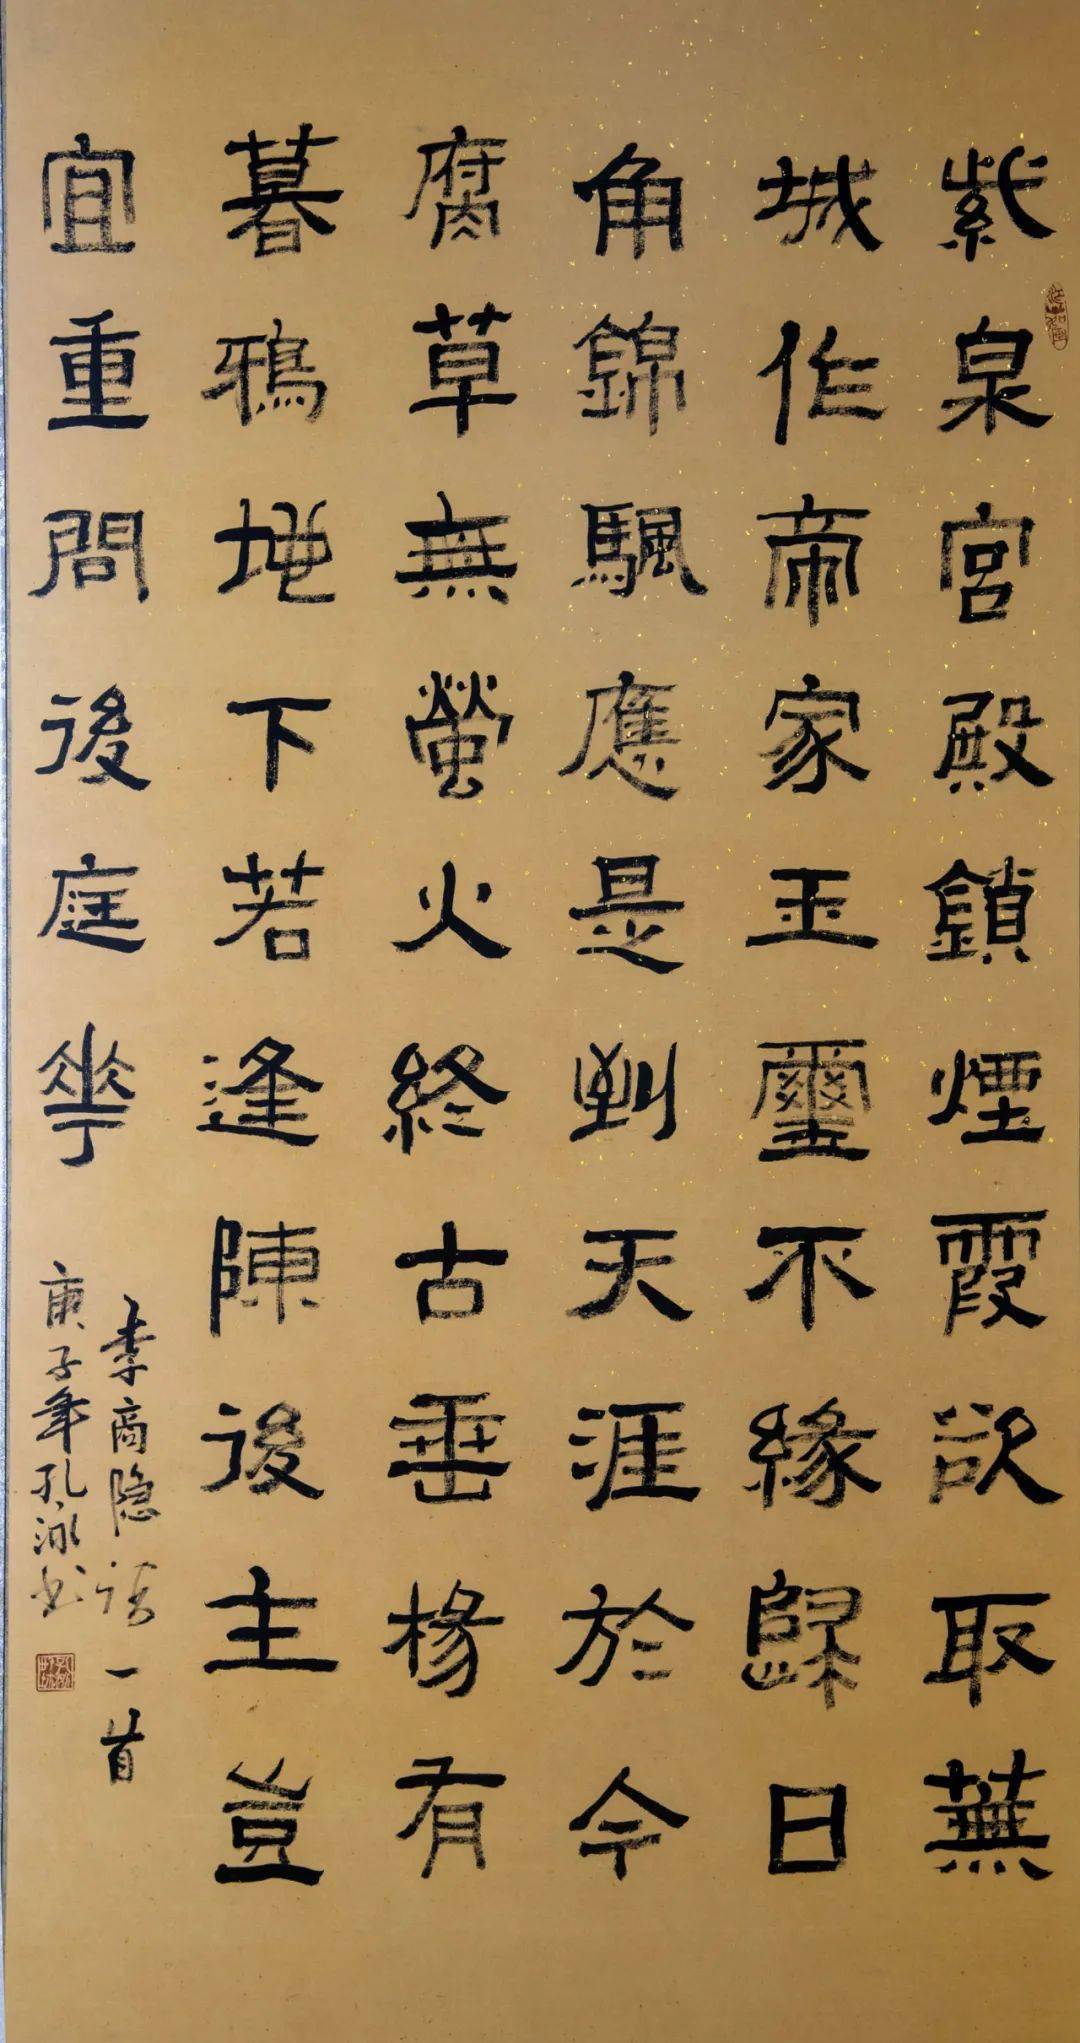 紫泉宮殿鎖煙霞欲取蕪
城作帝家玉璽不緣歸日
角錦颿應是到天涯於今
腐草無螢火終古垂楊有
暮鴉地下若逢陳後主豈
宜重問後庭華
李商隐诗一首
庚子年孔泳书